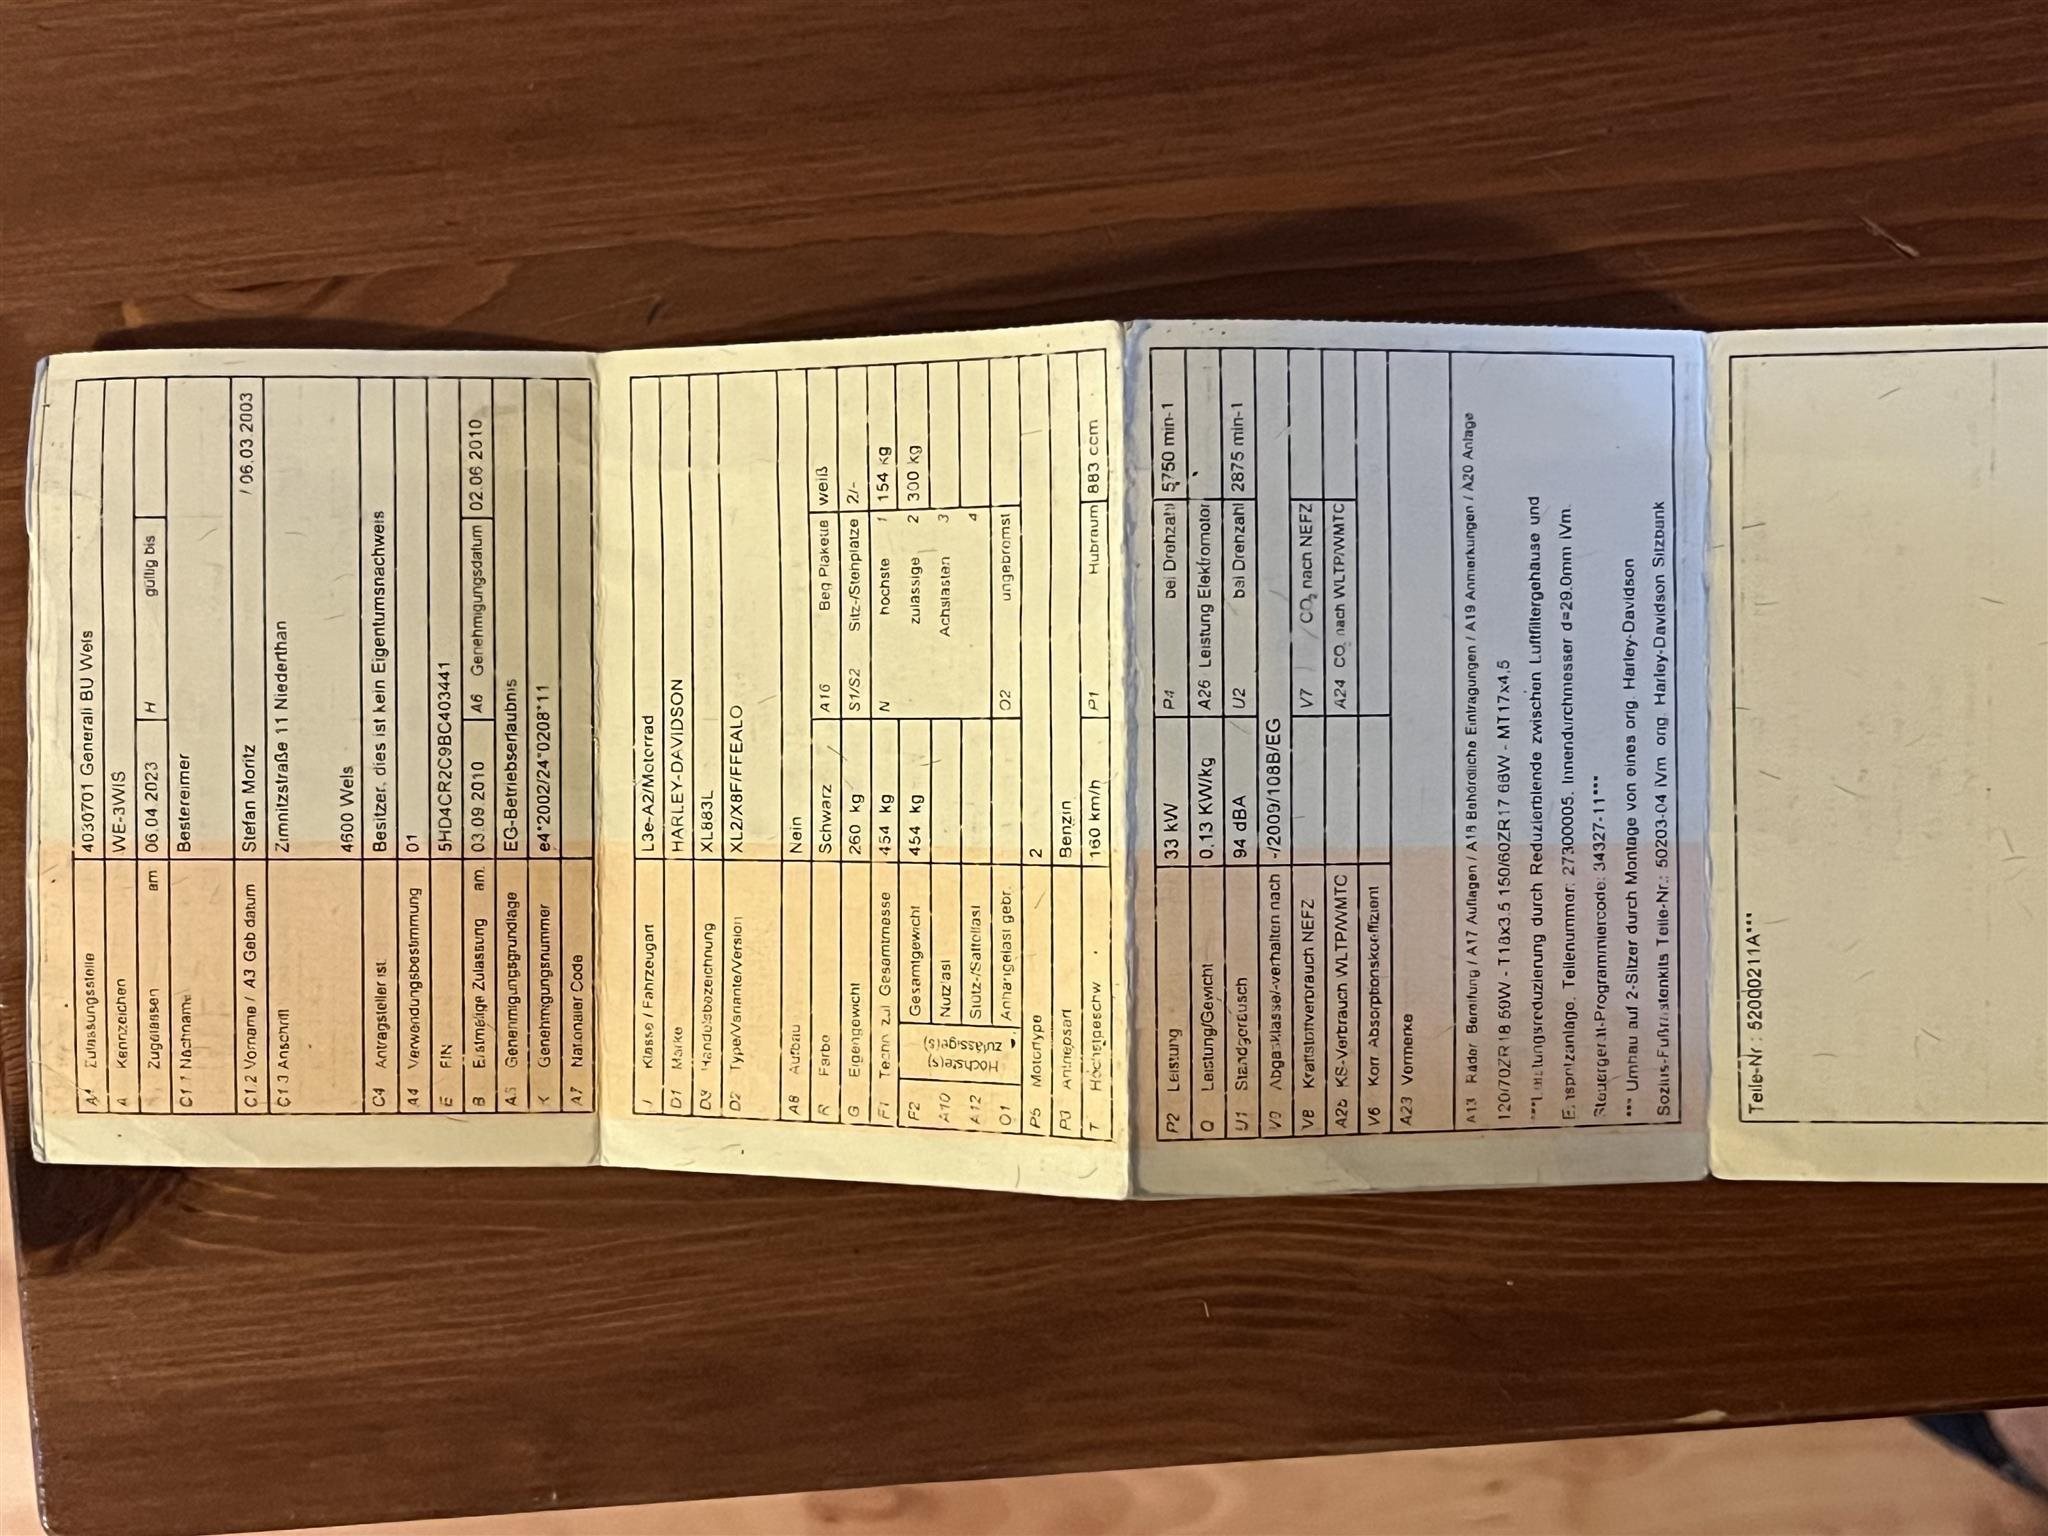 A1 Zulassungsstelle 4030701 Generali BU Wels
A Kennzeichen WE-3WIS
Zugelassen am 06.04.2023 H gültig bis
C1.1 Nachname Bestereimer
C1.2 Vorname / A3 Geb datum Stefan Moritz / 06.03.2003
C1.3 Anschrift Zimnitzstraße 11 Niederthan
4600 Wels
C4 Antragsteller ist Besitzer, dies ist kein Eigentumsnachweis
A4 Verwendungsbestimmung 01
E FIN 5HD4CR2C9BC403441
B Erstmalige Zulassung am 03.09.2010 A6 Genehmigungsdatum 02.06.2010
A5 Genehmigungsgrundlage EG-Betriebserlaubnis
K Genehmigungsnummer e4*2002/24*0208*11
A7 Nationaler Code
J Klasse / Fahrzeugart L3e-A2/Motorrad
D1 Marke HARLEY-DAVIDSON
D3 Handelsbezeichnung XL883L
D2 Type/Variante/Version XL2/X8F/FFEALO
A8 Aufbau Nein
R Farbe Schwarz A16 Beg Plakette weiß
G Eigengewicht 260 kg S1/S2 Sitz-/Stehplätze 2/-
F1 Techn zul Gesamtmasse 454 kg N höchste 1 154 kg
Höchste(s) zulässige(s)
F2 Gesamtgewicht 454 kg zulässige 2 300 kg
A10 Nutzlast Achslasten 3
A12 Stütz-/Sattellast 4
O1 Anhängelast gebr. O2 ungebremst
P5 Motortype 2
P3 Antriebsart Benzin
T Höchstgeschw. 160 km/h P1 Hubraum 883 ccm
P2 Leistung 33 kW P4 bei Drehzahl 5750 min-1
Q Leistung/Gewicht 0,13 KW/kg A26 Leistung Elektromotor
U1 Standgeräusch 94 dBA U2 bei Drehzahl 2875 min-1
V9 Abgasklasse/-verhalten nach -/2009/108B/EG
V8 Kraftstoffverbrauch NEFZ V7 CO₂ nach NEFZ
A25 KS-Verbrauch WLTP/WMTC A24 CO₂ nach WLTP/WMTC
V6 Korr Absorptionskoeffizient
A23 Vormerke
A13 Räder Bereifung / A17 Auflagen / A18 Behördliche Eintragungen / A19 Anmerkungen / A20 Anlage
120/70ZR18 59W - T18x3.5 150/60ZR17 66W - MT17x4,5
***Leistungsreduzierung durch Reduzierblende zwischen Luftfiltergehäuse und
Einspritzanlage, Teilenummer: 27300005, Innendurchmesser d=29.0mm iVm.
Steuergerät-Programmiercode: 34327-11***
*** Umbau auf 2-Sitzer durch Montage von eines orig. Harley-Davidson
Sozius-Fußrastenkits Teile-Nr.: 50203-04 iVm orig. Harley-Davidson Sitzbank
Teile-Nr.: 52000211A***